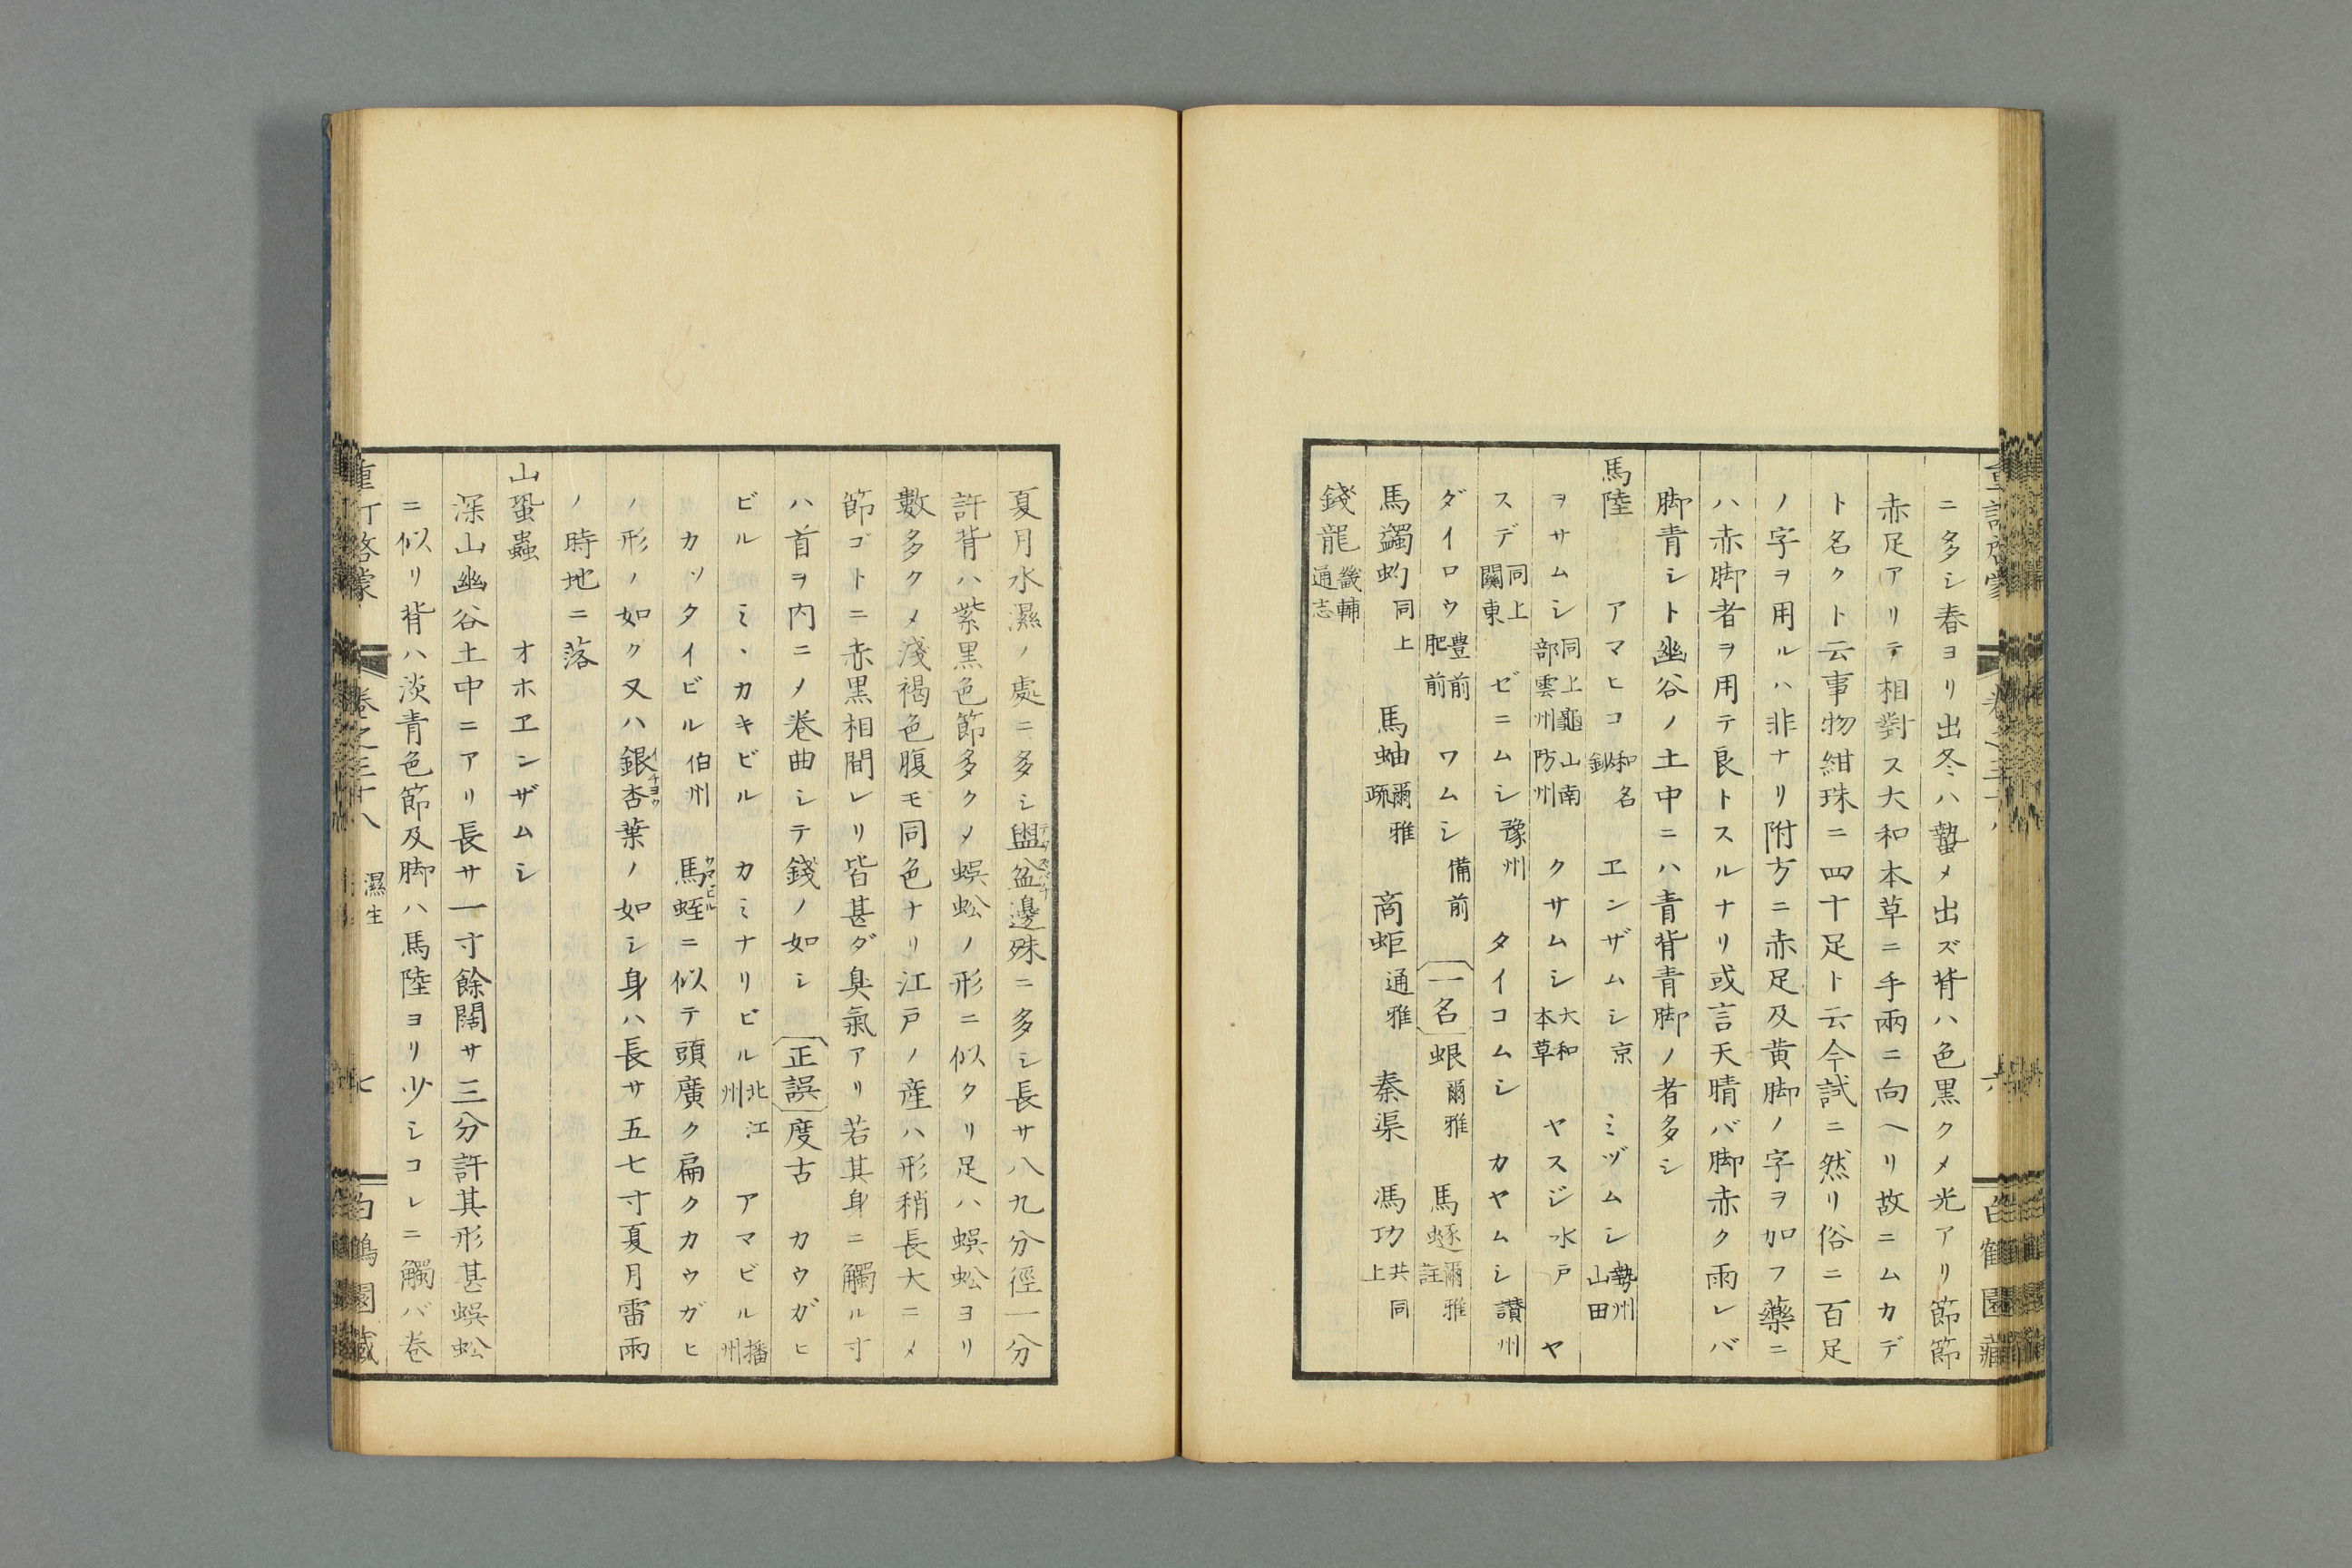 ニ多シ春ヨリ出冬ハ蟄メ出ズ背ハ色黒クメ光アリ節節
赤足アリテ相對ス大和本草ニ手兩ニ向ヘリ故ニムカデ
ト名クト云事物紺珠ニ四十足ト云今試ニ然リ俗ニ百足
ノ字ヲ用ルハ非ナリ附方ニ赤足及黄脚ノ字ヲ加フ藥ニ
ハ赤脚者ヲ用テ良トスルナリ或言天晴バ脚赤ク雨レバ
脚青シト幽谷ノ土中ニハ青背青脚ノ者多シ
馬陸 アマヒコ 和名鈔 ヱンザムシ 京 ミヅムシ 勢州山田
ヲサムシ 同上龜山南部雲州防州 クサムシ 大和本草 ヤスジ 水戸 ヤ
スデ 同上關東 ゼニムシ 豫州 タイコムシ カヤムシ 讃州
ダイロウ 豊前肥前 ワムシ 備前 一名 蛝 爾雅 馬蚿 爾雅註
馬蠲蚐 同上 馬蚰 爾雅疏 商蚷 通雅 秦渠 馮功 共同上
錢龍 畿輔通志
夏月水濕ノ處ニ多シ盥盆邊殊ニ多シ長サ八九分徑一分
許背ハ紫黒色節多クメ蜈蚣ノ形ニ似タリ足ハ蜈蚣ヨリ
數多クメ淺褐色腹モ同色ナリ江戸ノ産ハ形稍長大ニメ
節ゴトニ赤黒相間レリ皆甚ダ臭氣アリ若其身ニ觸ル寸
ハ首ヲ内ニメ卷曲シテ錢ノ如シ 正誤 度古 カウガヒ
ビル ミヽカキビル カミナリビル 北江州 アマビル 播州
カッタイビル 伯州 馬蛭ニ似テ頭廣ク扁クカウガヒ
ノ形ノ如ク又ハ銀杏葉ノ如シ身ハ長サ五七寸夏月雷雨
ノ時地ニ落
山蛩蟲 オホヱンザムシ
深山幽谷土中ニアリ長サ一寸餘闊サ三分許其形甚蜈蚣
ニ似リ背ハ淡青色節及脚ハ馬陸ヨリ少シコレニ觸バ卷
重訂啓蒙 卷之三十八 濕生 七 白鶴園藏